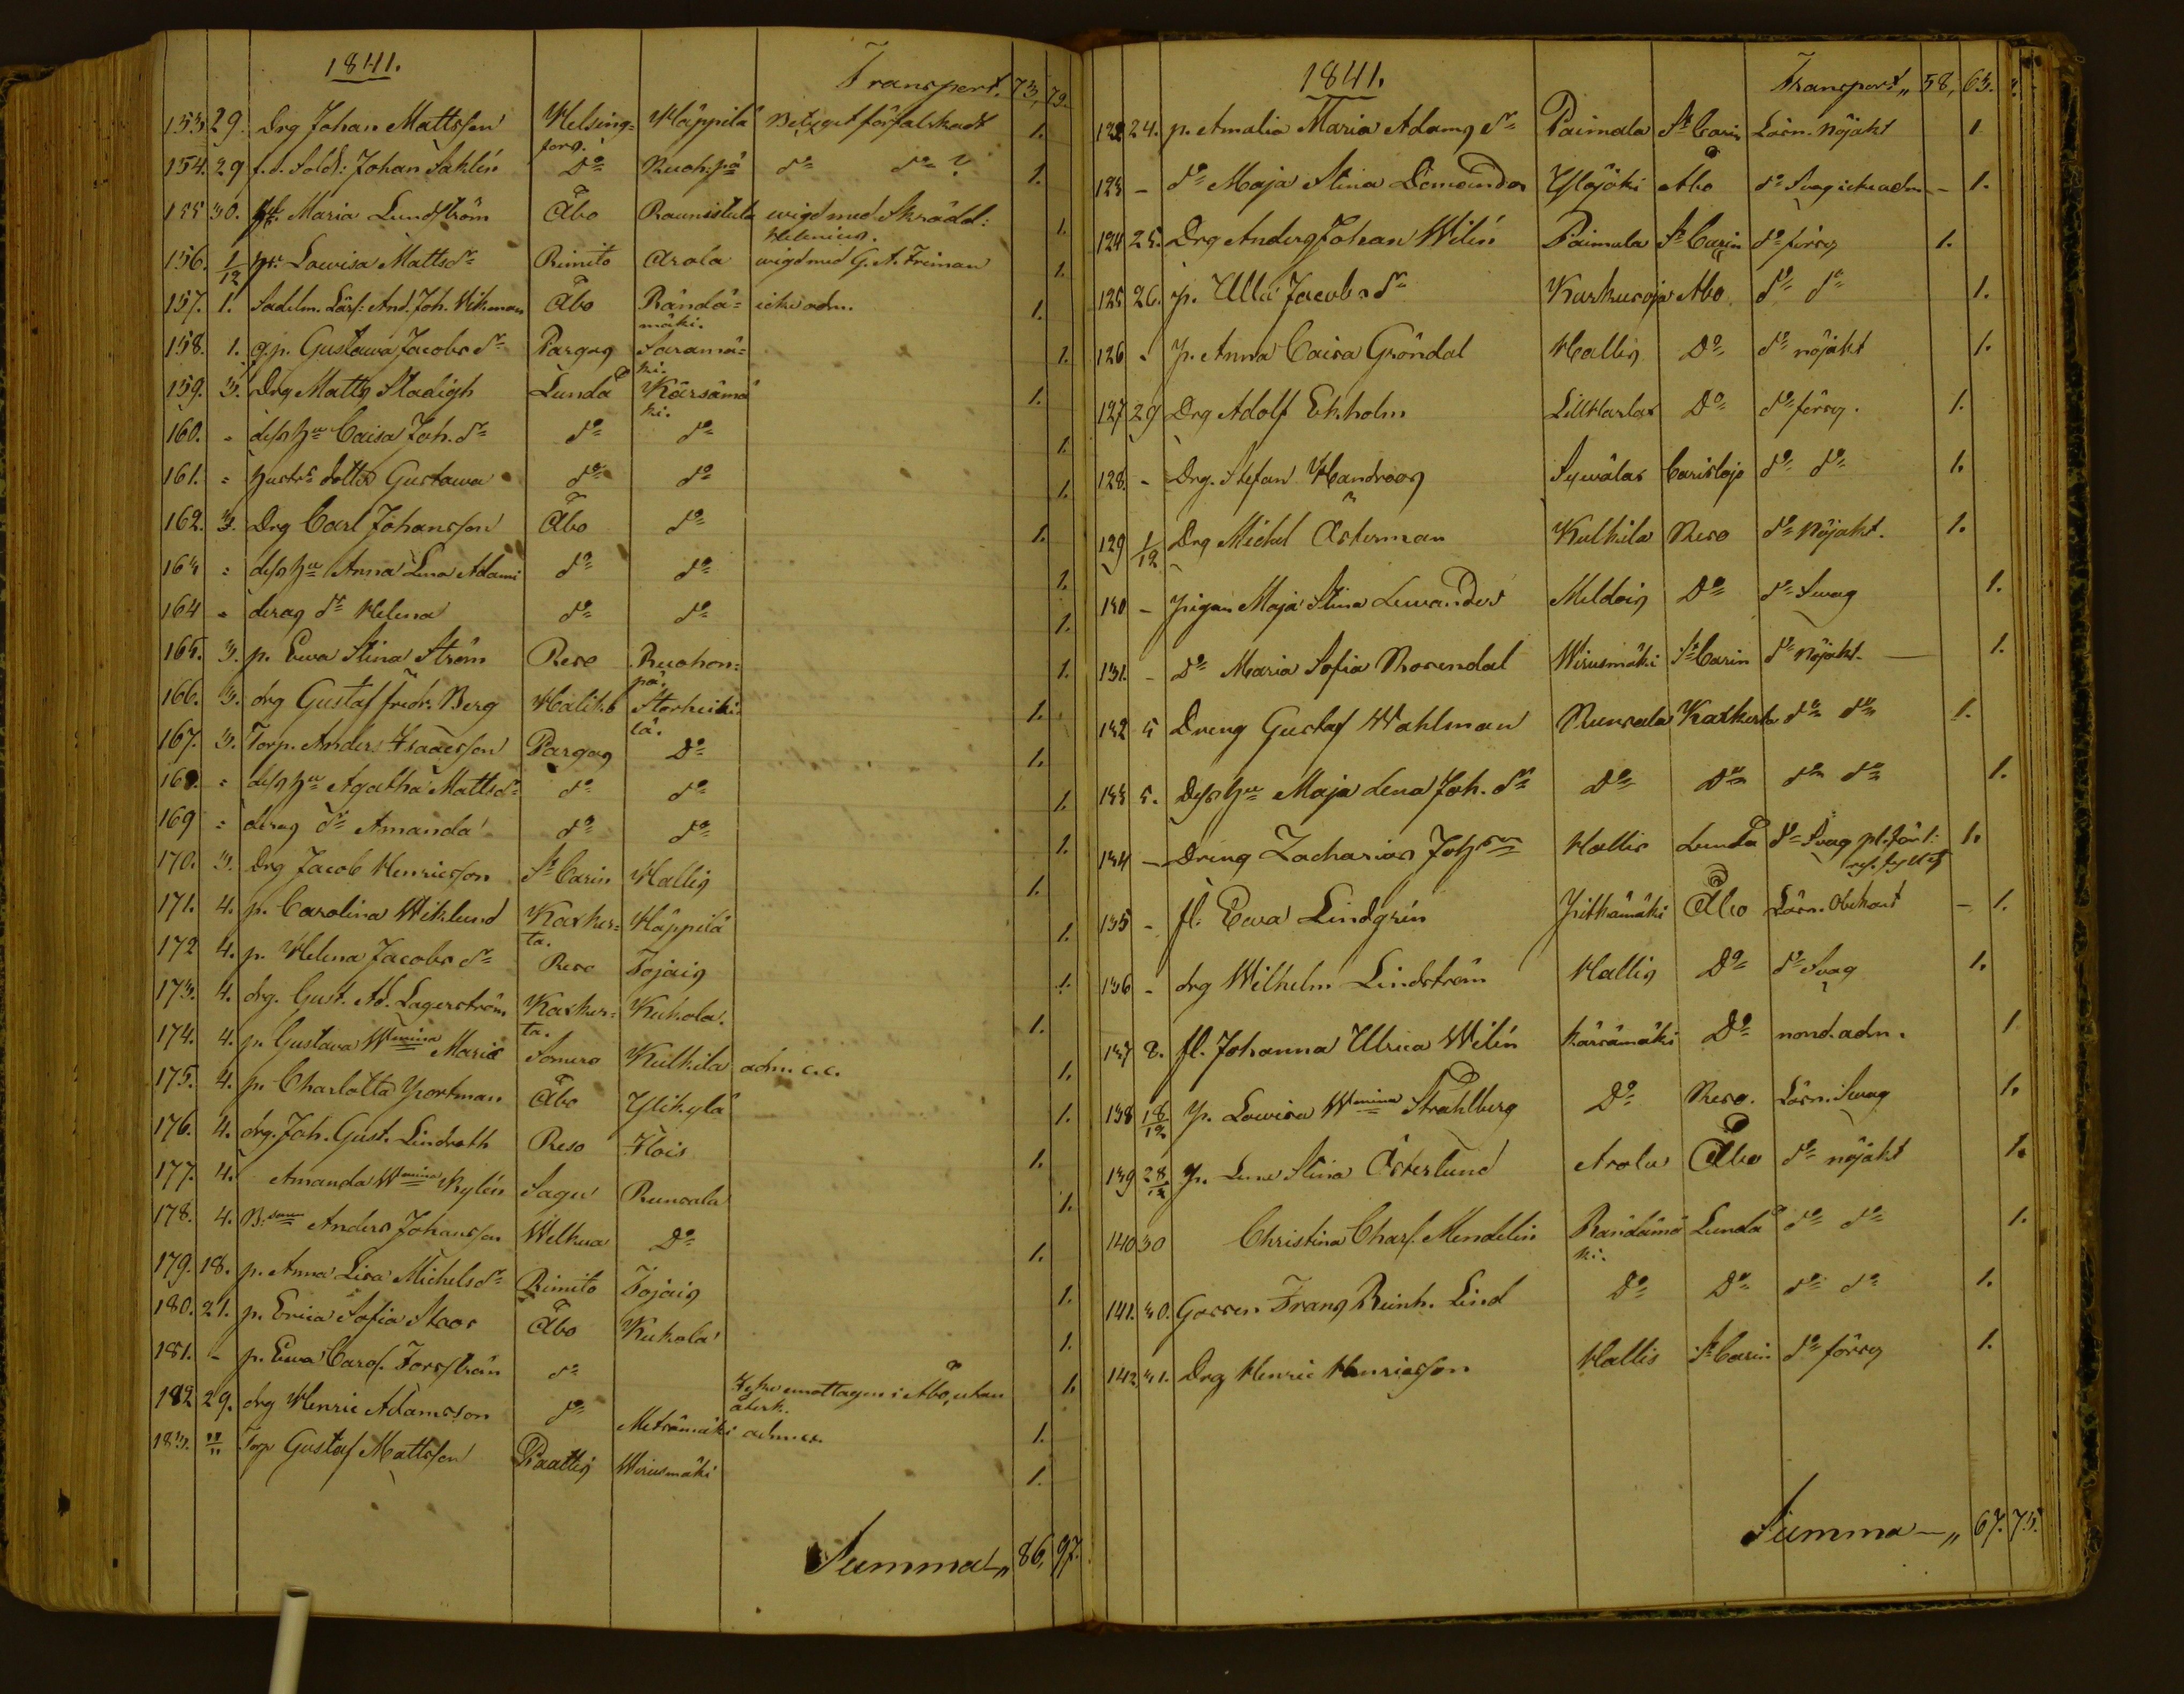 1841.
Transport. 73, 79.
153 29. Drg Johan Mattsson Helsing= Häppilä Betyget förfalskadt 1.
fors.
154. 29 f.d. Sold: Johan Sahlén Do Ruohpä do do ? 1.
155 30. Maria Lundström Åbo Raunistula wigd med Skrädd: 1.
Helenius.
156. 1/12 Lowisa Mattsdr Rimito Arola wigd med G. A. Friman 1.
157. 1. Sadelm. Lärl: And. Joh. Wikman Åbo Rändä= icke adm. 1.
mäki.
158. 1. g.p. Gustawa Jacobsdr Pargas Saramä= 1.
ki.
159. 3. Drg Matts Stadigh Lundå Kärsämä 1.
ki.
160. " dess hu Caisa Joh. dr do do 1.
161. = hustrs dotter Gustawa do do 1.
162. 3. Drg Carl Johansson Åbo do 1.
163 = dess hu Anna Lena Adami do do 1.
164 " deras dr Helena do do 1.
165. 3. p. Ewa Stina Ström Reso Ruohon= 1.
pä.
166. 3. drg Gustaf Fredr. Berg Haliko Storheiki= 1.
lä.
167. 3. Torp. Anders Isacsson Pargas Do 1.
168. = dess hu Agatha Mattsdr do do 1.
169 = deras dr Amanda do do 1.
170. 3. Drg Jacob Henricsson St Carin Hallis 1.
171. 4. p. Carolina Wiklund Kaxker= Häppilä 1.
ta.
172 4. p. Helena Jacobsdr Reso Tojais 1.
173. 4. drg. Gust. Ad. Lagerström Kaxker= Kukola. 1.
ta.
174. 4. p. Gustava Wmina Maria Somero Kulkila adm. c.c. 1.
175. 4. p. Charlotta Åbo Ylikylä 1.
176. 4. drg. Joh. Gust. Lindroth Reso Hois 1.
177. 4. Amanda Wmina Nylén Sagu Runsala 1.
178. 4. Anders Johansson Welkua Do 1.
179. 18. p. Anna Lisa Michelsdr Rimito Tojais 1.
180. 21. p. Erica Sofia Åbo Kukola 1.
181. - p. Ewa Carol. Forsström do 1.
Icke emottagen i Åbo, utan
återk.
182 29. drg Henric Adamsson do Metsämäki adm. 1.
183. " Torp Gustaf Mattsson Paattis Wirusmäki 1.
Summa " 86, 97.
1841.
Transport " 58, 63.
122 24. p. Amalia Maria Adamsdr Paimala St Carin Läsn. Nöjakt 1
123 - do Maja Stina Yläjöki Åbo do Svag icke adm - 1.
124 25. Drg Anders Johan Wilén Paimala St Carin do försv 1.
125 26. p. Ulla Jacobsdr Kurkuroja Åbo do do 1.
126 " p. Anna Caisa Gröndal Hallis Do do nöjakt 1.
127 29 Drg Adolf Ekholm Lill Harlax Do do försv. 1.
128. - Drg. Stefan Handroos Carislojo do do 1.
129 1/12 Drg Michel Österman Kulkila Reso do Nöjakt. 1.
130 - pigan Maja Stina Lewander Meldois Do do Svag 1.
131. - do Maria Sofia Rosendal Wirusmäki St Carin do Nöjakt. 1.
132 5 Dreng Gustaf Wahlman Runsala Kaxkerta do do 1.
133 5. Dess hu Maja Lena Joh. dr Do Do do do 1.
134 - Dreng Zacharias Johsson Hallis Lunda do Svag 1.
135 - fl. Ewa Lindgrén Pitkämäki Åbo Läsn. Obekant - 1.
136 - drg Wilhelm Lindström Hallis Do do Svag 1.
137 8. fl. Johanna Ulrica Wilén Kärsämäki Do nond. adm. 1
138 18/12 p. Lowisa Wmina Strahlberg Do Reso. Läsn. Svag 1.
139 28/12 p. Lena Stina Österlund Arola Åbo do nöjakt 1.
140 30 Christina Charl. Mendelin Rändämä Lundå do do 1.
ki.
141. 30. Gossen Frans Reinh. Lind Do Do do do 1.
142 31. Drg Henric Henricsson Hallis St Carin do försv 1.
Summa " 67. 75.